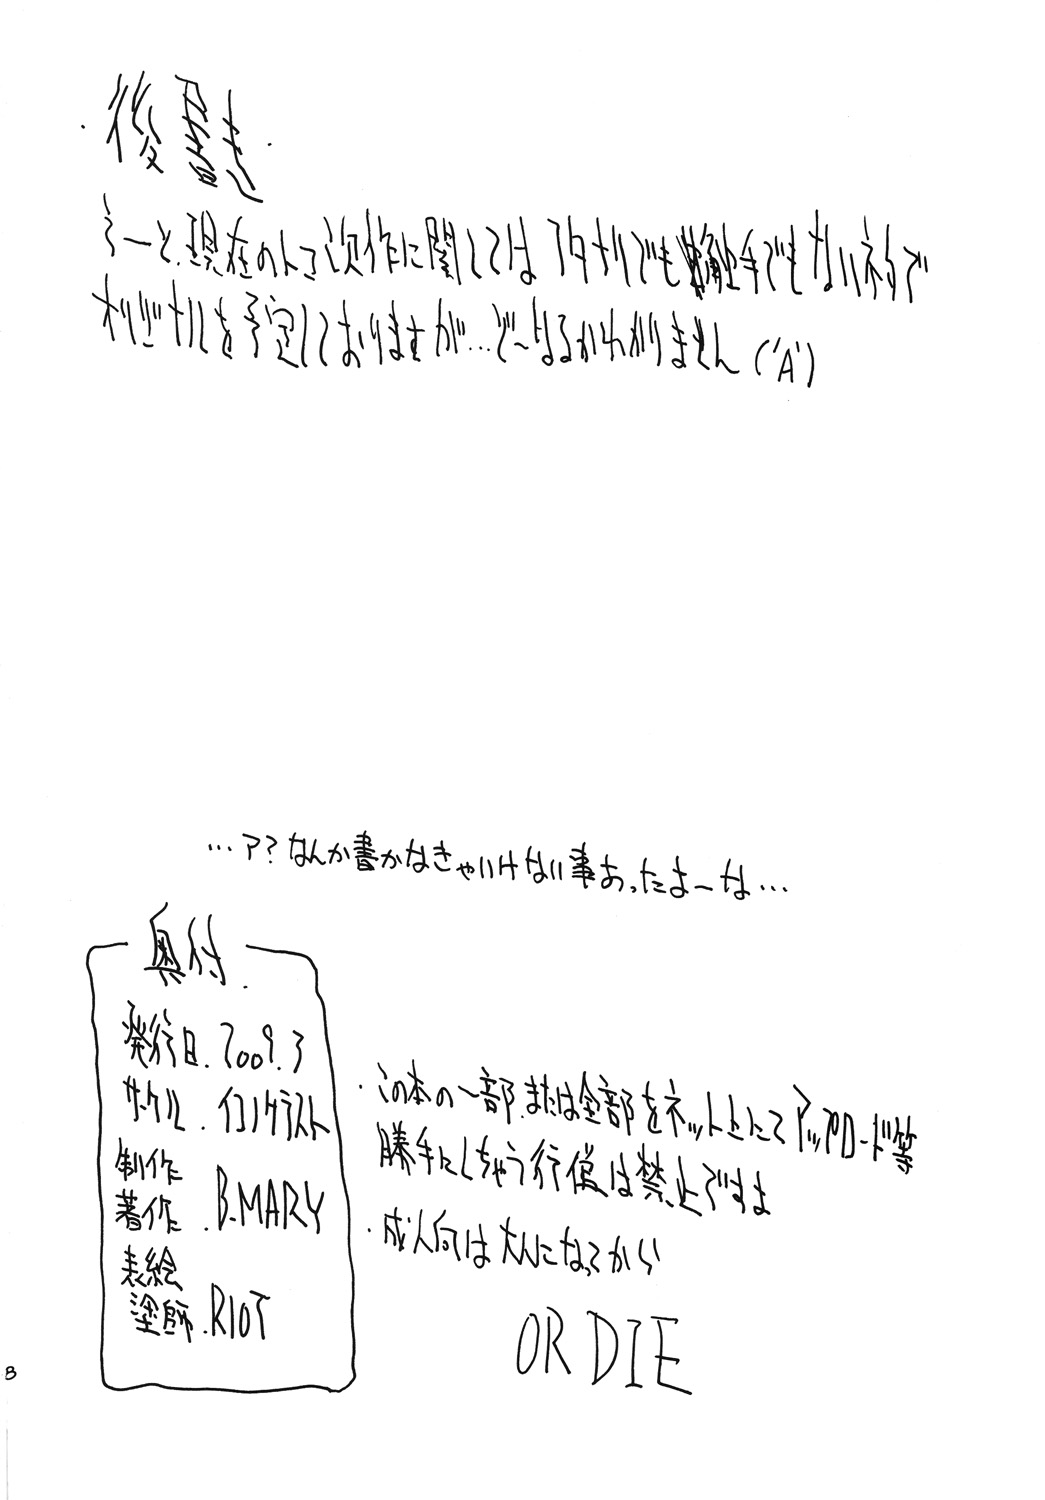 ・後書き・
えーと、現在のトコ次作に関しては フタナリでも触手でもないネタで
オリジナルを予定しておりますが…ど〜なるかわかりません('A')
…ア?なんか書かなきゃいけない事あったよーな…
奥付.
発行日.2009.3
サークル.イコノクラスト
制作
著作.B.MARY
表絵
塗師.RIOT
・この本の一部.または全部をネット上にてアップロード等
勝手にしちゃう行為は禁止ですよ
・成人向は大人になってから
OR DIE